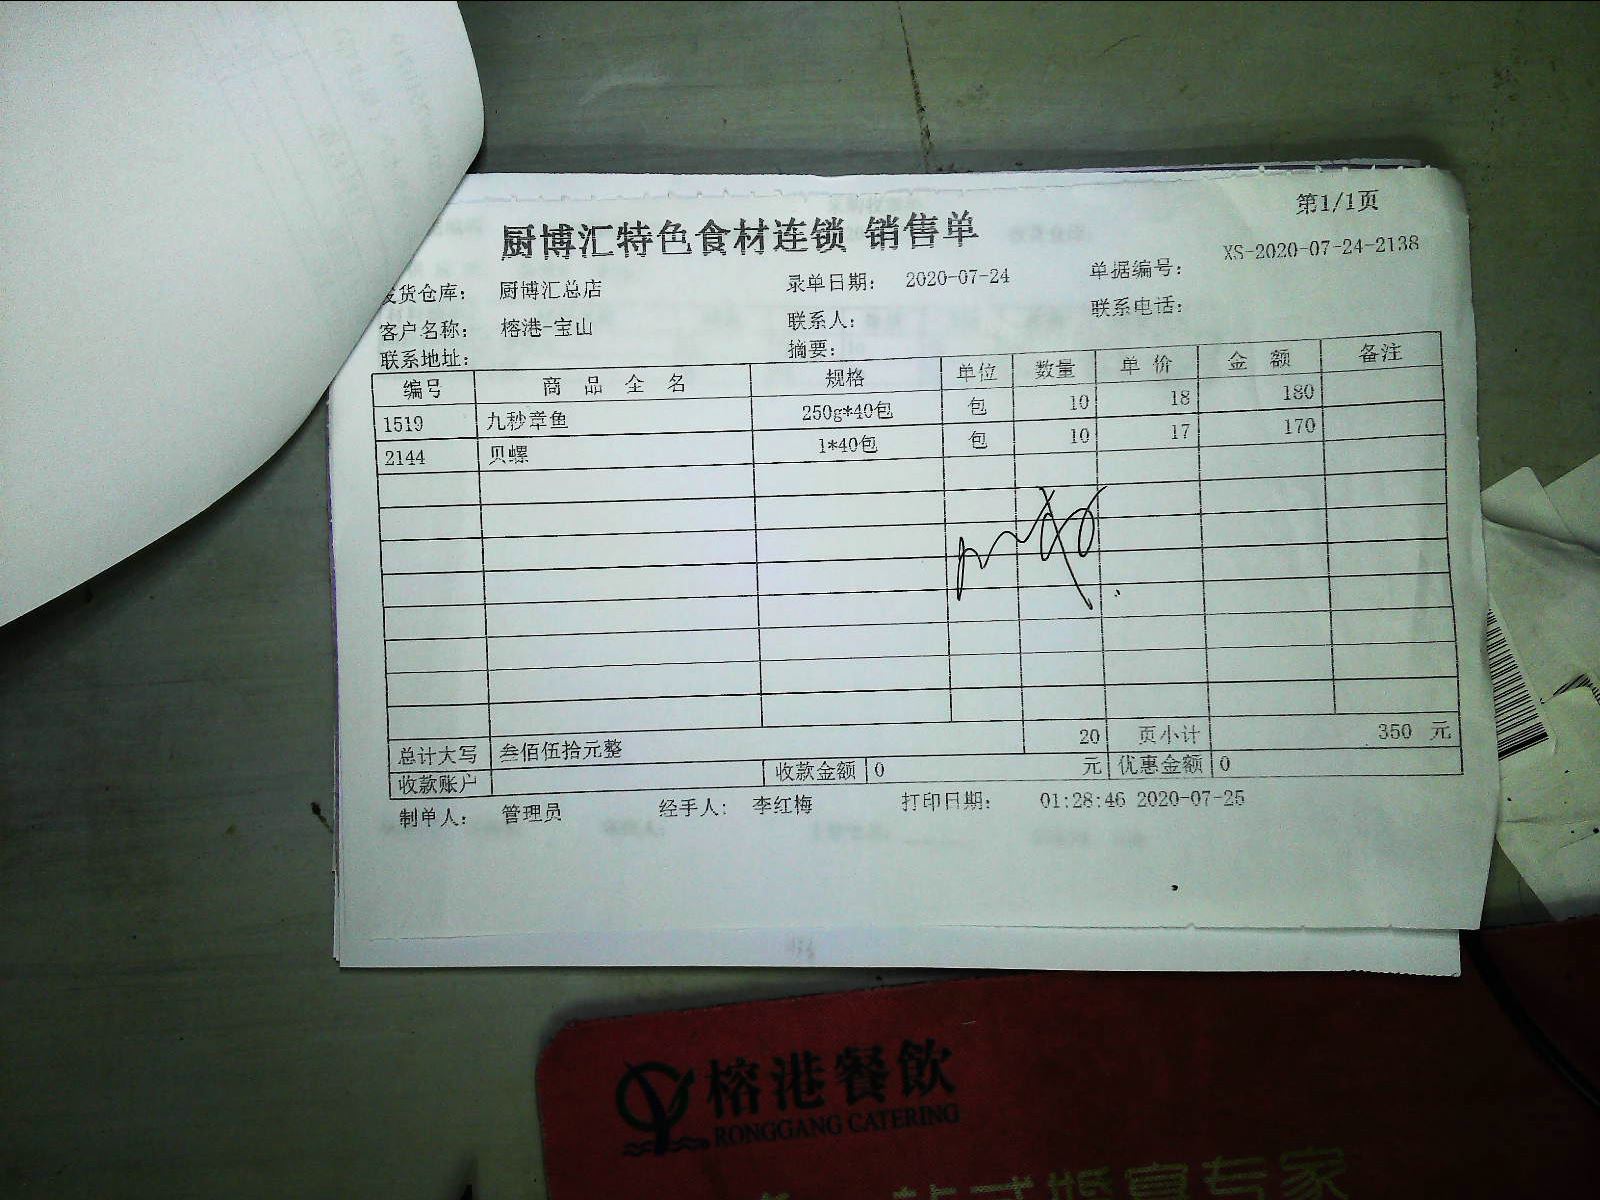 第1/1页
厨博汇特色食材连锁 销售单
发货仓库： 厨博汇总店 录单日期： 2020-07-24 单据编号： XS-2020-07-24-2138
客户名称： 榕港-宝山 联系人： 联系电话：
联系地址： 摘要：
编号 商 品 全 名 规格 单位 数量 单 价 金 额 备注
1519 九秒章鱼 250g*40包 包 10 18 180
2144 贝螺 1*40包 包 10 17 170
总计大写 叁佰伍拾元整 20 页小计 350 元
收款账户 收款金额 0 元 优惠金额 0
制单人： 管理员 经手人： 李红梅 打印日期： 01:28:46 2020-07-25
榕港餐飲
RONGGANG CATERING
专家